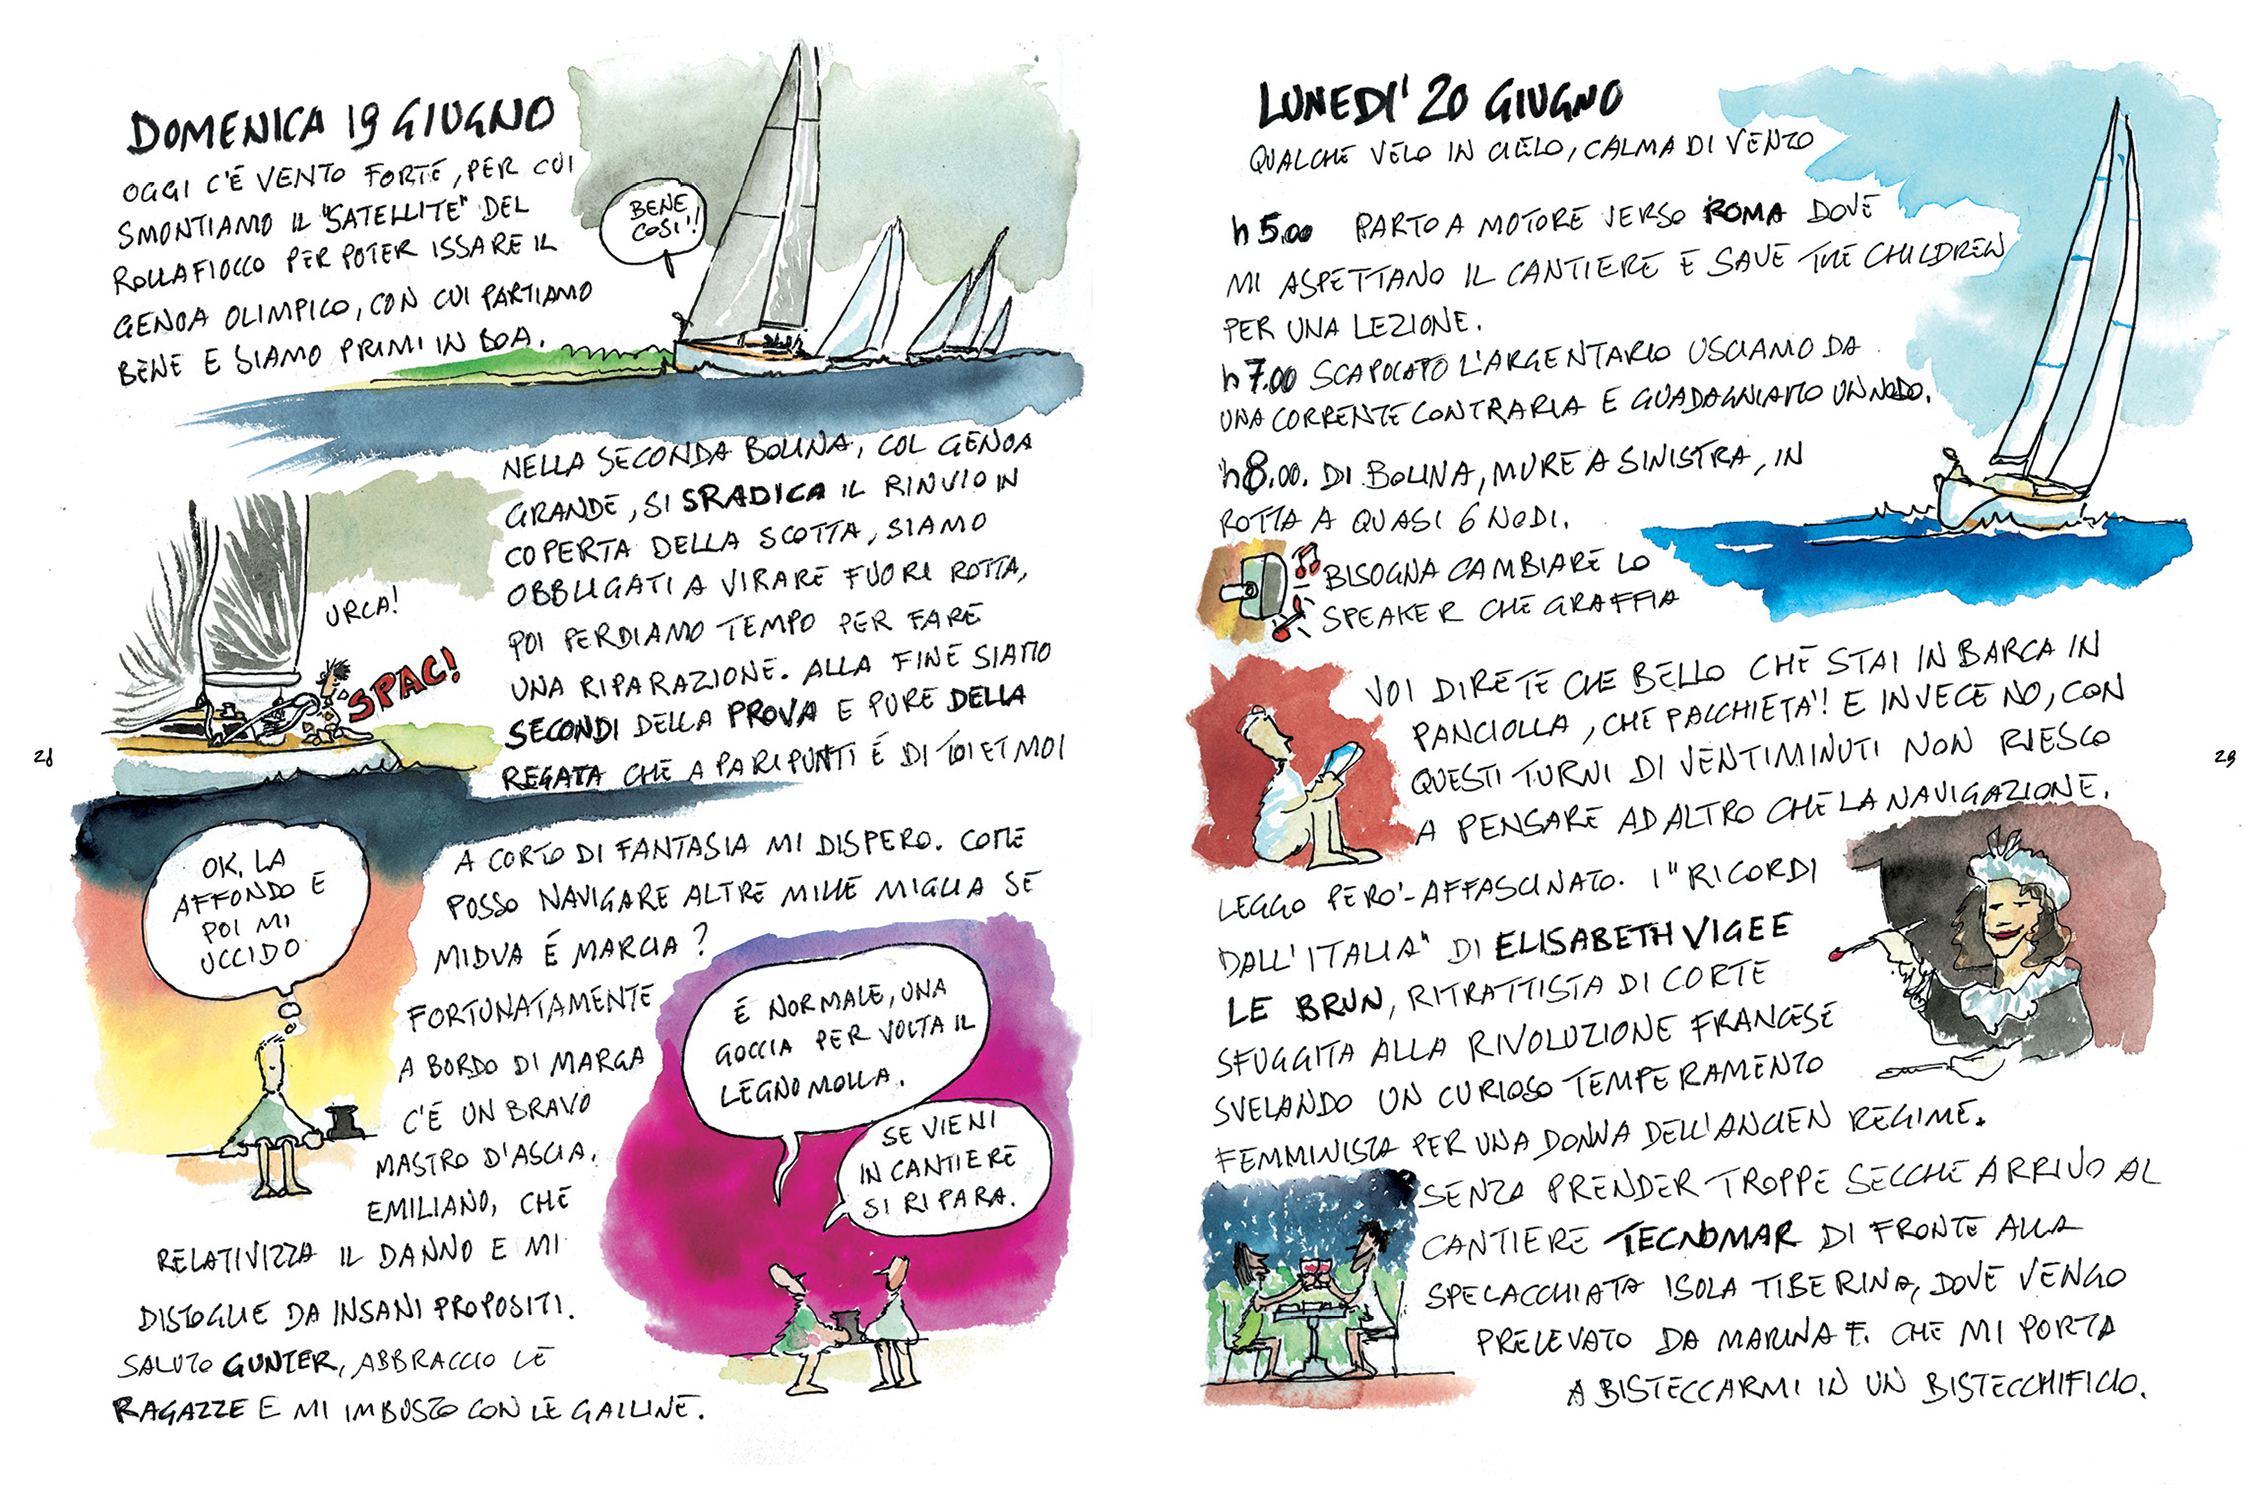 DOMENICA 19 GIUGNO
OGGI C'È VENTO FORTE, PER CUI
SMONTIAMO IL "SATELLITE" DEL
ROLLAFIOCCO PER POTER ISSARE IL
GENOA OLIMPICO, CON CUI PARTIAMO
BENE E SIAMO PRIMI IN BOA.
BENE
COSI'!!
NELLA SECONDA BOLINA, COL GENOA
GRANDE, SI SRADICA IL RINVIO IN
COPERTA DELLA SCOTTA, SIAMO
OBBLIGATI A VIRARE FUORI ROTTA,
POI PERDIAMO TEMPO PER FARE
UNA RIPARAZIONE. ALLA FINE SIAMO
SECONDI DELLA PROVA E PURE DELLA
REGATA CHE A PARI PUNTI È DI TOI ET MOI
URCA!
SPAC!
28
OK, LA
AFFONDO E
POI MI
UCCIDO
A CORTO DI FANTASIA MI DISPERO. COME
POSSO NAVIGARE ALTRE MILLE MIGLIA SE
MIDVA È MARCIA?
FORTUNATAMENTE
A BORDO DI MARGA
C'È UN BRAVO
MASTRO D'ASCIA,
EMILIANO, CHE
RELATIVIZZA IL DANNO E MI
DISTOGLIE DA INSANI PROPOSITI.
SALUTO GUNTER, ABBRACCIO LE
RAGAZZE E MI IMBUSTO CON LE GALLINE.
È NORMALE, UNA
GOCCIA PER VOLTA IL
LEGNO MOLLA.
SE VIENI
IN CANTIERE
SI RIPARA.
LUNEDI' 20 GIUGNO
QUALCHE VELO IN CIELO, CALMA DI VENTO
h 5.00 PARTO A MOTORE VERSO ROMA DOVE
MI ASPETTANO IL CANTIERE E SAVE THE CHILDREN
PER UNA LEZIONE.
h 7.00 SCAPOLATO L'ARGENTARIO USCIAMO DA
UNA CORRENTE CONTRARIA E GUADAGNIAMO UN NODO.
h 8.00. DI BOLINA, MURE A SINISTRA, IN
ROTTA A QUASI 6 NODI.
BISOGNA CAMBIARE LO
SPEAKER CHE GRAFFIA
VOI DIRETE CHE BELLO CHE STAI IN BARCA IN
PANCIOLLA, CHE PACCHIETA'! E INVECE NO, CON
QUESTI TURNI DI VENTIMINUTI NON RIESCO
A PENSARE AD ALTRO CHE LA NAVIGAZIONE.
LEGGO PERO'-AFFASCINATO. I "RICORDI
DALL'ITALIA" DI ELISABETH VIGEE
LE BRUN, RITRATTISTA DI CORTE
SFUGGITA ALLA RIVOLUZIONE FRANCESE
SVELANDO UN CURIOSO TEMPERAMENTO
FEMMINISTA PER UNA DONNA DELL'ANCIEN REGIME.
SENZA PRENDER TROPPE SECCHE ARRIVO AL
CANTIERE TECNOMAR DI FRONTE ALLA
SPELACCHIATA ISOLA TIBERINA, DOVE VENGO
PRELEVATO DA MARINA F. CHE MI PORTA
A BISTECCARMI IN UN BISTECCHIFICIO.
29